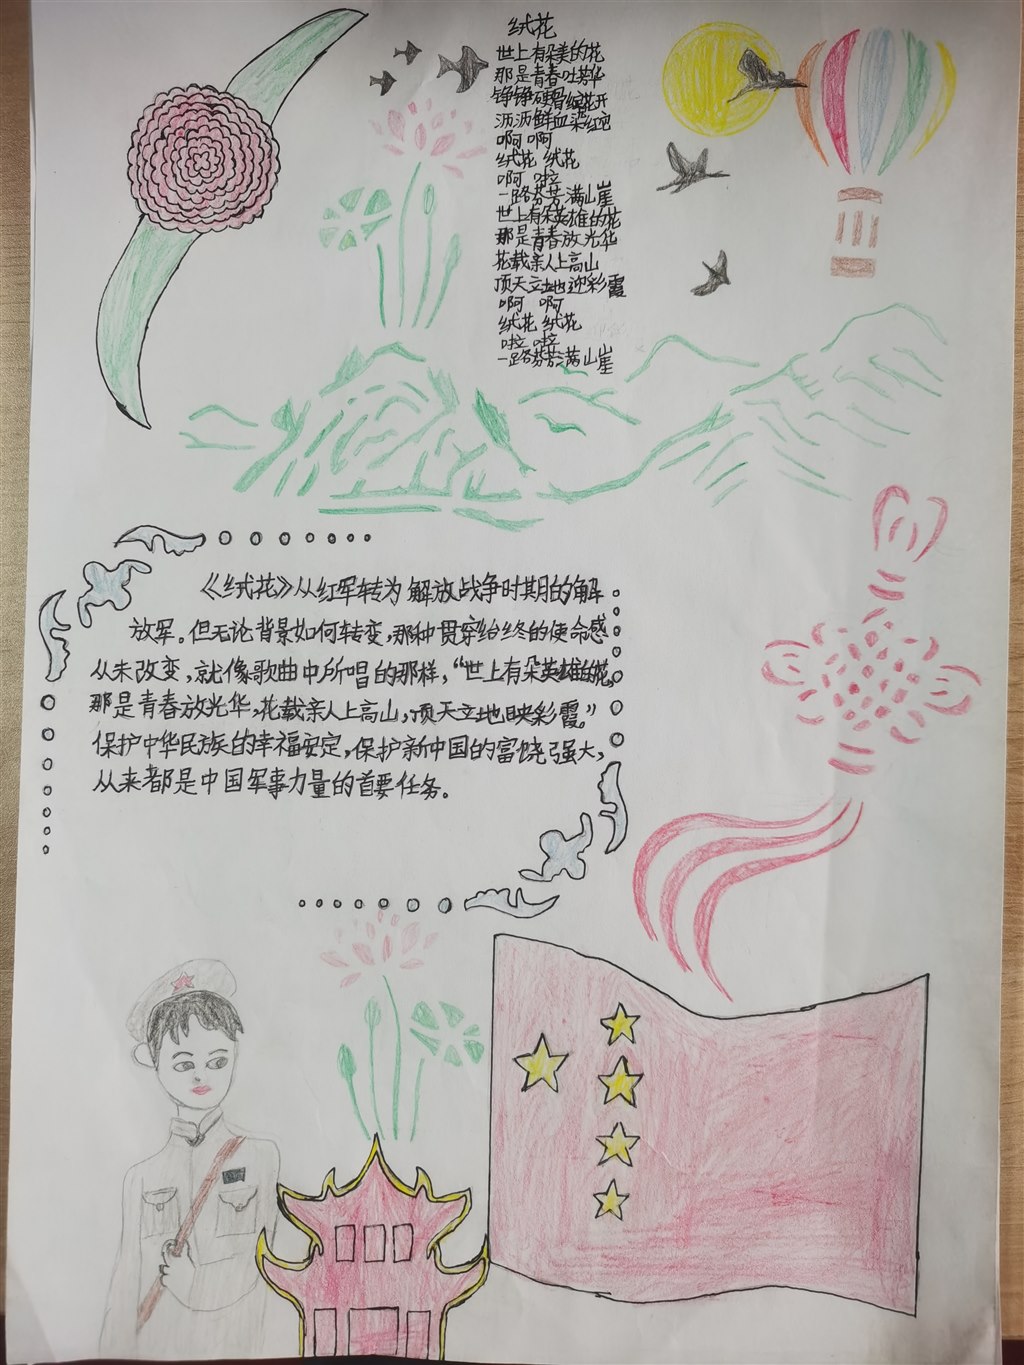 绒花
世上有朵美的花
那是青春吐芳华
铮铮硬骨绽花开
沥沥鲜血染红它
啊 啊
绒花 绒花
啊 啦
一路芬芳满山崖
世上有朵英雄的花
那是青春放光华
花载亲人上高山
顶天立地迎彩霞
啊 啊
绒花 绒花
啦 啦
一路芬芳满山崖
《绒花》从红军转为解放战争时期的解
放军。但无论背景如何转变,那种贯穿始终的使命感
从未改变,就像歌曲中所唱的那样,“世上有朵英雄的花,
那是青春放光华,花载亲人上高山,顶天立地映彩霞。”
保护中华民族的幸福安定,保护新中国的富饶强大,
从来都是中国军事力量的首要任务。